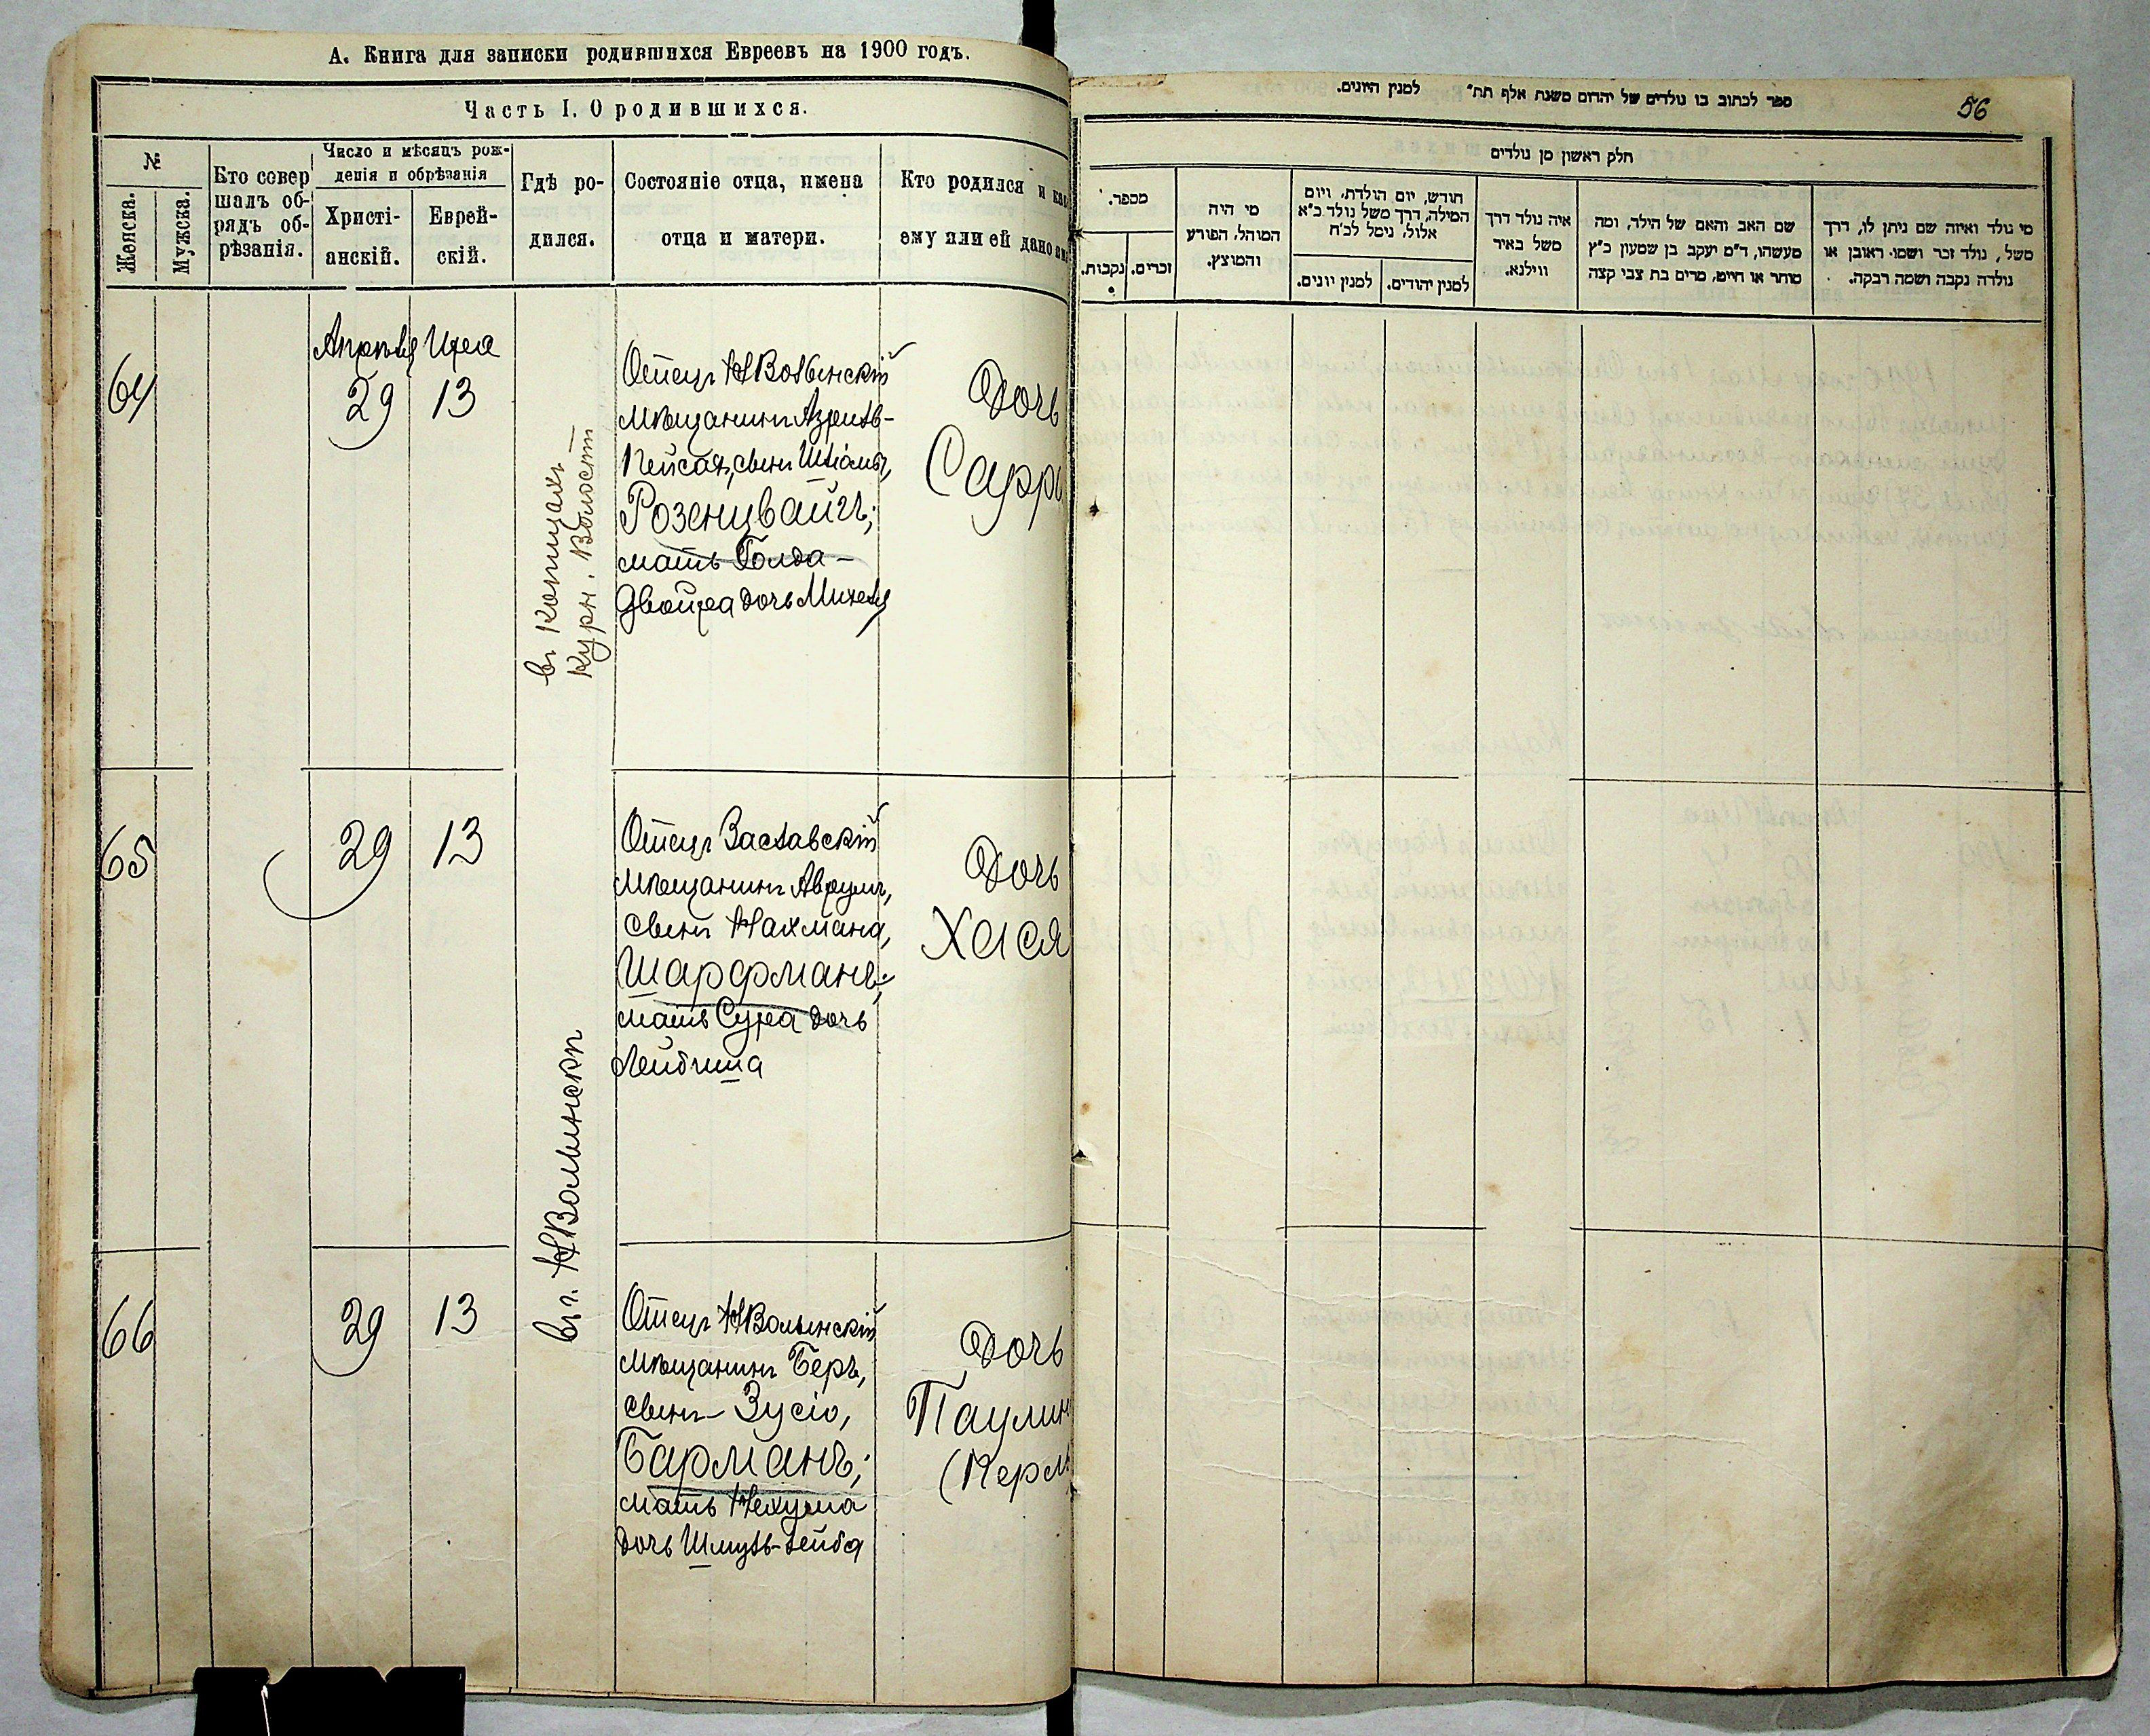 А. Книга для записки родившихся Евреевъ на 1900 годъ.
Часть I. О родившихся.
№
Женска.
Мужска.
Кто совер
шалъ об-
рядъ об-
рѣзанія.
Число и мѣсяцъ рож-
денія и обрѣзанія
Христі-
анскій.
Еврей-
скій.
Гдѣ ро-
дился.
Состояніе отца, имена
отца и матери.
Кто родился и ка
ему или ей дано
64
Апрѣля Ияра
29 13
Отецъ НВолынскій
мѣщанинъ Азриль-
Пейсахъ, сынъ
Розенцвайгъ;
мать Голда-
Двойра дочь Михеля
Дочь
Сарр
65
29 13
Отецъ Заславскій
мѣщанинъ Аврумъ,
сынъ Нахмана,
Шарфманъ;
мать Сура дочь
Лейбиша
Дочь
Хася
въ г. НВолынскѣ
66
29 13
Отецъ НВолынскій
мѣщанинъ Беръ,
сынъ Зусіо,
Барманъ;
мать Нехума
дочь Шмуль-Лейба
Дочь
Паулин
(Перл
ספר לכתוב בו נולדים של יהודים משנת אלף תת״ למנין היונים.
56
חלק ראשון מן נולדים
מספר.
נקבות.
זכרים.
מי היה
המוהל, הפורע
והמוצץ.
חודש, יום הולדת, ויום
המילה, דרך משל נולד כ״א
אלול, נימל לכ״ח
למנין יונים.
למנין יהודים.
איה נולד דרך
משל באיר
ווילנא.
שם האב והאם של הילד, ומה
מעשהו, ד״מ יעקב בן שמעון כ״ץ
סוחר או חייט, מרים בת צבי קצה
מי נולד ואיזה שם ניתן לו, דרך
משל, נולד זכר ושמו ראובן או
נולדה נקבה ושמה רבקה.